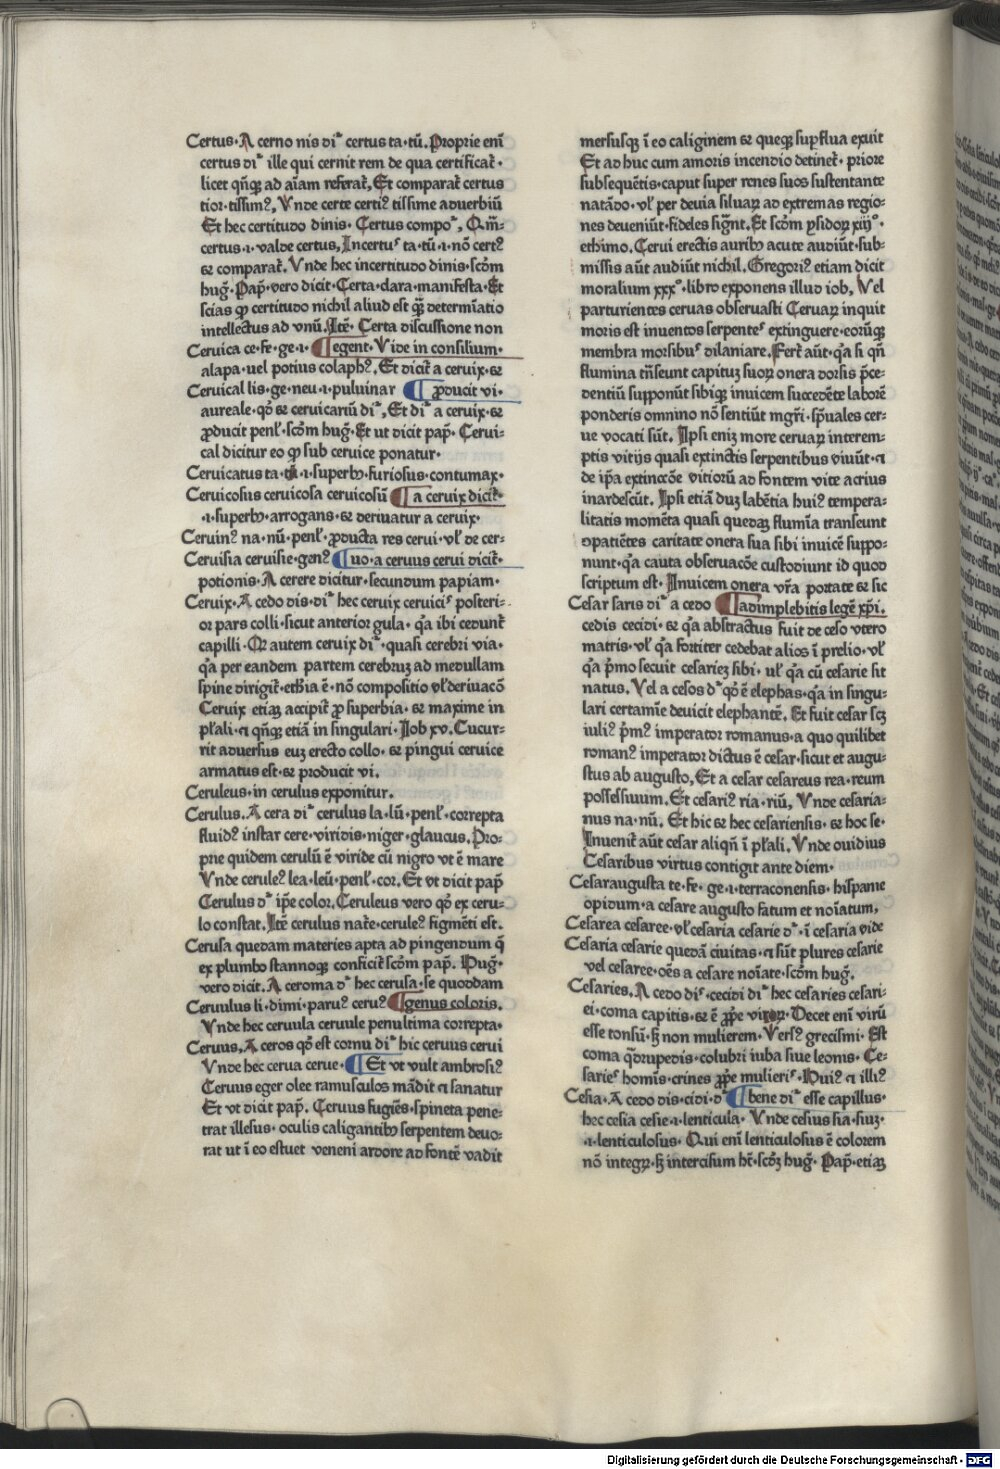 Certus·A cerno nis di͛ certus ta·tū. Proprie enī
certus di͛ ille qui cernit rem de qua certificat̄·
licet qn̄qꝫ ad aīam referat̄, Et comparat̄ certus
tior·tissimꝰ, Vnde certe certiꝰ tissime aduerbiū
Et hec certitudo dinis· Certus compoᷣ, Om̄·
certus·ı·valde certus, Incertuˢ ta·tū·ı·nō certꝰ
ꝛ comparat̄. Vnde hec incertitudo dinis·scd̄m
hug̅· Pap̄·vero dicit·Certa·clara·manifesta·Et
scias ꝙ certitudo nichil aliud est qꝫ̄ determīatio
intellectus ad vnū. Itē· Certa discussione non
Ceruica ce·fe·ge·ı· ¶egent·Vide in consilium·
alapa·uel potius colaphꝰ, Et dicit̄ a ceruix·ꝛ
Ceruical lis·ge·neu·ı·puluinar ¶ ꝓducit vi·
aureale·qō ꝛ ceruicariū di͛, Et di͛ a ceruix·ꝛ
ꝓducit penl̄·scōm hug̅·Et ut dicit pap̄· Cerui⸗
cal dicitur eo ꝙ sub ceruice ponatur·
Ceruicatus ta·tū·ı·superbꝰ·furiosus·contumax·
Ceruicosus ceruicosa ceruicosū ¶ a ceruix dicit̄·
·ı·superbꝰ·arrogans·ꝛ deriuatur a ceruix·
Ceruinꝰ na·nū·penl̄·ꝓducta res cerui·vl̄ de cer⸗
Ceruisia ceruisie·genꝰ ¶uo·a ceruus cerui dicit̄·
potionis·A cerere dicitur·secundum papiam·
Ceruix·A cedo dis·di͛ hec ceruix ceruiciˢ posteri⸗
or pars colli·sicut anterior gula· qͣ ibi cedunt̄
capilli·Ol autem ceruix di͛·quasi cerebri via·
qͣ per eandem partem cerebruꝫ ad medullam
spine dirigit̄·ethīa ē·nō compositio vl̄deriuacō
Ceruix etiaꝫ accipit̄ ꝓ superbia·ꝛ maxime in
pl̄ali·⁊ qn̄qꝫ etiā in singulari·Iob xv·Cucur⸗
rit aduersus euꝫ erecto collo·ꝛ pingui ceruice
armatus est·ꝛ producit vi·
Ceruleus·in cerulus exponitur·
Cerulus·A cera di͛ cerulus la·lū·penl̄·correpta
fluidꝰ instar cere·viridis·niger·glaucus·Pro⸗
prie quidem cerulū ē viride cū nigro vt ē mare
Vnde ceruleꝰ lea·leū·penl̄·cor·Et vt dicit pap̄
Cerulus d͛ ip̄e color·Ceruleus vero qō ex ceru⸗
lo constat·Itē cerulus nat̄e·ceruleꝰ figmēti est·
Cerusa quedam materies apta ad pingendum q̄
ex plumbo stannoqꝫ conficit̄ scd̄m pap̄. Hug̅·
vero dicit·A ceroma d͛ hec cerusa·se quoddam
Ceruulus li·dimi·paruꝰ ceruꝰ ¶genus coloris·
Vnde hec ceruula ceruule penultima correpta·
Ceruus·A ceros qō est cornu di͛ hic ceruus cerui
Vnde hec cerua cerue· ¶Et vt vult ambrosiꝰ
Ceruus eger olee ramusculos mādit ⁊ sanatur
Et vt dicit pap̄· Ceruus fugiēs·spineta pene⸗
trat illesus·oculis caligantibꝰ serpentem deuo⸗
rat ut ī eo estuet veneni ardore ad fontē vadit
mersusqꝫ ī eo caliginem ꝛ queqꝫ supflua exuit
Et ad huc cum amoris incendio detinet̄·priore
subsequētis·caput super renes suos sustentante
natādo·vl̄ per deuia siluaꝝ ad extremas regio⸗
nes deueniūt·fideles sigr̄nt. Et scōm ysidoꝝ xijᵒ·
ethimo·Cerui erectis auribꝰ acute audiūt·sub⸗
missis aūt audiūt nichil. Gregoriꝰ etiam dicit
moralium xxxᵒ·libro exponens illud iob, Vel
parturientes ceruas obseruasti Ceruaꝝ inquit
moris est inuentos serpenteˢ extinguere·eorūqꝫ
membra morsibuˢ dilaniare. Fert̄ aūt·qͣ si qn̄
flumina trāseunt capituꝫ suoꝝ onera dorsis p̄ce⸗
dentiū supponūt sibiqꝫ inuicem succedēte laborē
ponderis omnino nō sentiūt mgr̄i·sp̄uales cer⸗
ue vocati sūt. Ipsi eniꝫ more ceruaꝝ interem⸗
ptis vitijs quasi extinctis serpentibus viuūt·⁊
de ip̄a extinccōe vitiorū ad fontem vite acrius
inardescūt. Ipsi etiā duꝫ labētia huiꝰ tempera⸗
litatis momēta quasi quedaꝫ flumīa transeunt
ꝯpatiētes caritate onera sua sibi inuicē suppo⸗
nunt·qͣ cauta obseruacōe custodiunt id quod
scriptum est· Inuicem onera vr̄a portate ꝛ sic
Cesar saris di͛ a cedo ¶adimplebitis legē xp̄i.
cedis cecidi·ꝛ qͣ abstractus fuit de ceso vtero
matris·vl̄ qͣ fortiter cedebat alios ī prelio·vl̄
qͣ pͥmo secuit cesarieꝫ sibi· ul̄ qͣ cū cesarie sit
natus. Vel a cesos d͛ qō ē elephas·qͣ in singu⸗
lari certamīe deuicit elephantē. Et fuit cesar scꝫ
iuliꝰ pͥmꝰ imperator romanus·a quo quilibet
romanꝰ imperator dictus ē cesar·sicut et augu⸗
stus ab augusto, Et a cesar cesareus rea·reum
possessiuum. Et cesariꝰ ria·riū, Vnde cesaria⸗
nus na·nū. Et hic ꝛ hec cesariensis·ꝛ hoc se·
Inuenit̄ aūt cesar aliqn̄ ī pl̄ali. Vnde ouidius
Cesaribus virtus contigit ante diem·
Cesaraugusta te·fe·ge·ı·terraconensis·hispanie
opidum·a cesare augusto fatum et noīatum,
Cesarea cesaree·vl̄cesaria cesarie d͛·ī cesaria vide
Cesaria cesarie quedā ciuitas·⁊ sūt plures cesarie
vel cesaree·oēs a cesare noīate·scōm hug̅.
Cesaries. A cedo diˢ·cecidi di͛ hec cesaries cesari⸗
ei·coma capitis·ꝛ ē ꝓpͥe viroꝝ·Decet enī virū
esse tonsū·ꝫ non mulierem· Versꝰ grecismi· Est
coma qͣdrupedis·colubri iuba siue leonis· Ce⸗
sarieˢ homīs·crines ꝓpͥe mulieriˢ·Huiꝰ ⁊ illiꝰ
Cesia·A cedo dis·cidi·d͛ ¶bene di͛ esse capillus·
hec cesia cesie·ı·lenticula· Vnde cesius sia·siuꝫ·
·ı·lenticulosus· Qui enī lenticulosus ē colorem
nō integꝝ·ꝫ intercisum hꝫ̄·scōꝫ hug̅· Pap̄·etiaꝫ
Digitalisierung gefördert durch die Deutsche Forschungsgemeinschaft - DFG